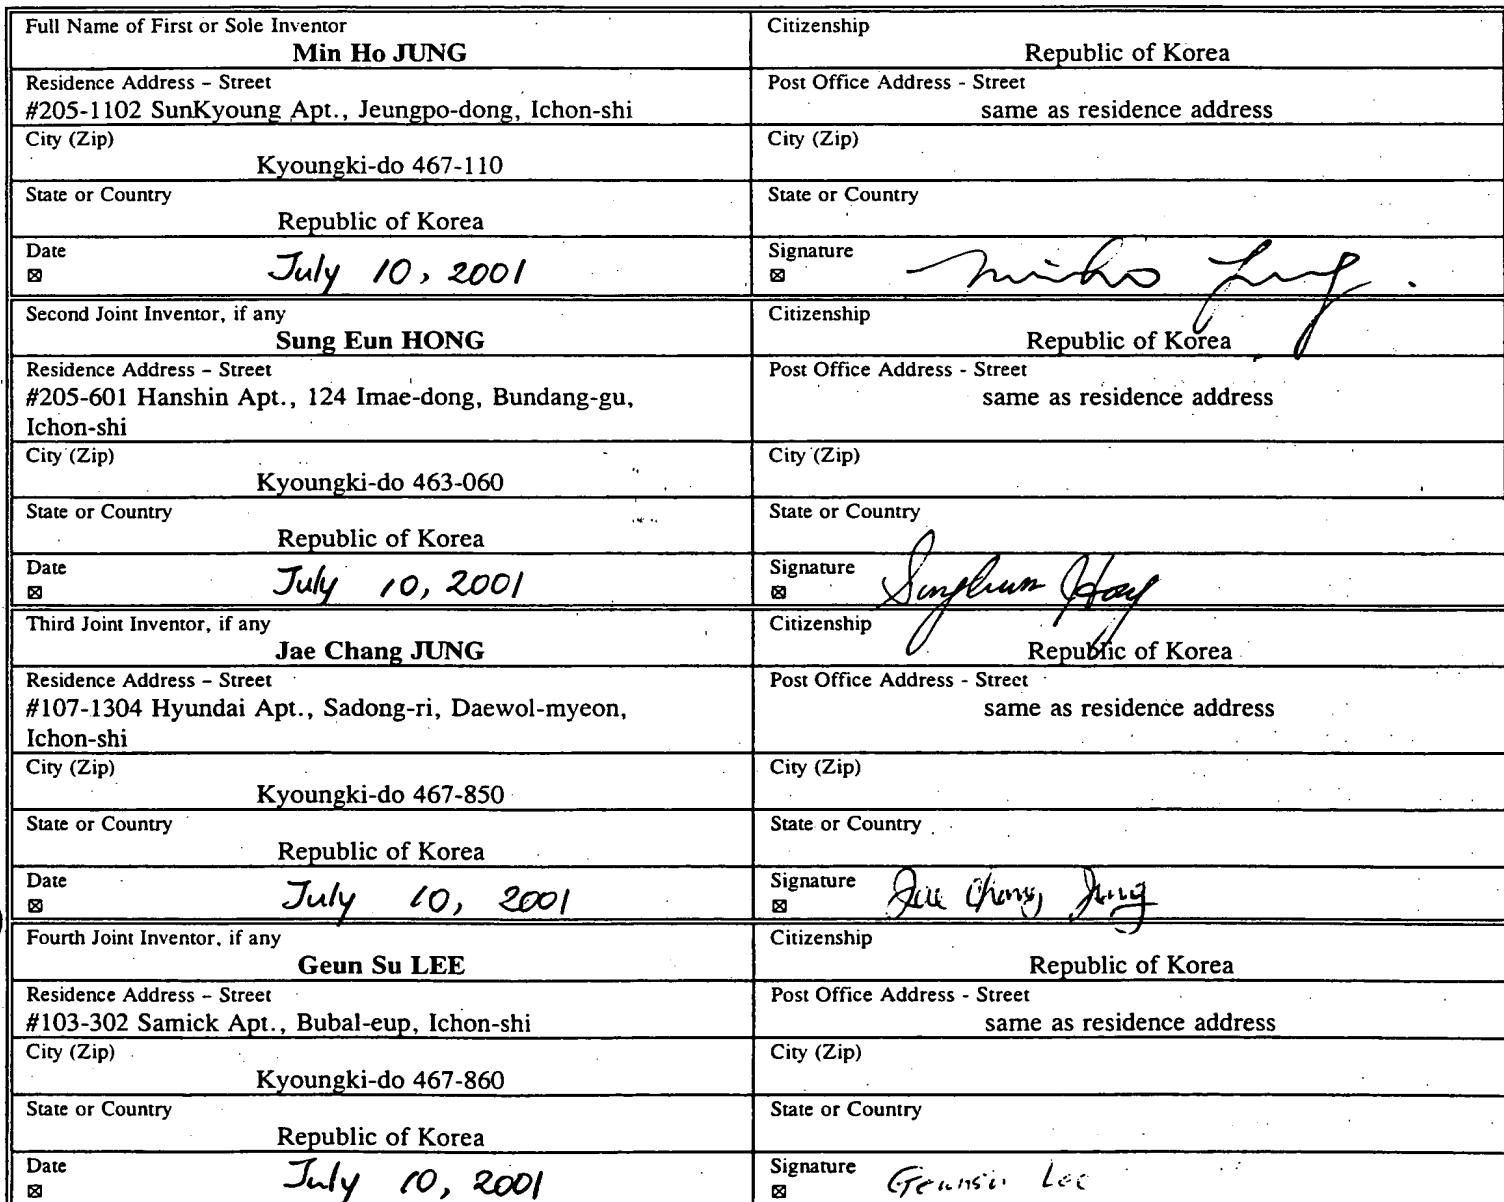 Full Name of First or Sole Inventor
Min Ho JUNG
Citizenship
Republic of Korea
Residence Address – Street
#205-1102 SunKyoung Apt., Jeungpo-dong, Ichon-shi
Post Office Address - Street
same as residence address
City (Zip)
Kyoungki-do 467-110
City (Zip)
State or Country
Republic of Korea
State or Country
Date
☒ July 10, 2001
Signature
☒ minho Jung
Second Joint Inventor, if any
Sung Eun HONG
Citizenship
Republic of Korea
Residence Address – Street
#205-601 Hanshin Apt., 124 Imae-dong, Bundang-gu,
Ichon-shi
Post Office Address - Street
same as residence address
City (Zip)
Kyoungki-do 463-060
City (Zip)
State or Country
Republic of Korea
State or Country
Date
☒ July 10, 2001
Signature
☒ Sungeun Hong
Third Joint Inventor, if any
Jae Chang JUNG
Citizenship
Republic of Korea
Residence Address – Street
#107-1304 Hyundai Apt., Sadong-ri, Daewol-myeon,
Ichon-shi
Post Office Address - Street
same as residence address
City (Zip)
Kyoungki-do 467-850
City (Zip)
State or Country
Republic of Korea
State or Country
Date
☒ July 10, 2001
Signature
☒ Jae Chang Jung
Fourth Joint Inventor, if any
Geun Su LEE
Citizenship
Republic of Korea
Residence Address – Street
#103-302 Samick Apt., Bubal-eup, Ichon-shi
Post Office Address - Street
same as residence address
City (Zip)
Kyoungki-do 467-860
City (Zip)
State or Country
Republic of Korea
State or Country
Date
☒ July 10, 2001
Signature
☒ Geunsu Lee